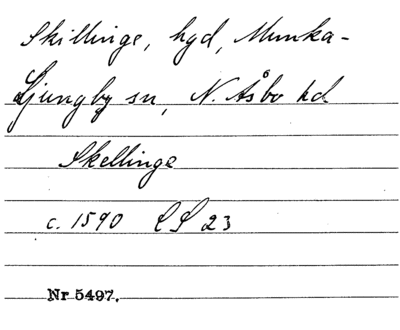 Skillinge, hgd, Munka-
Ljungby sn, N. Åsbo hd.
Skellinge
c. 1590 LS 23
Nr 5497.